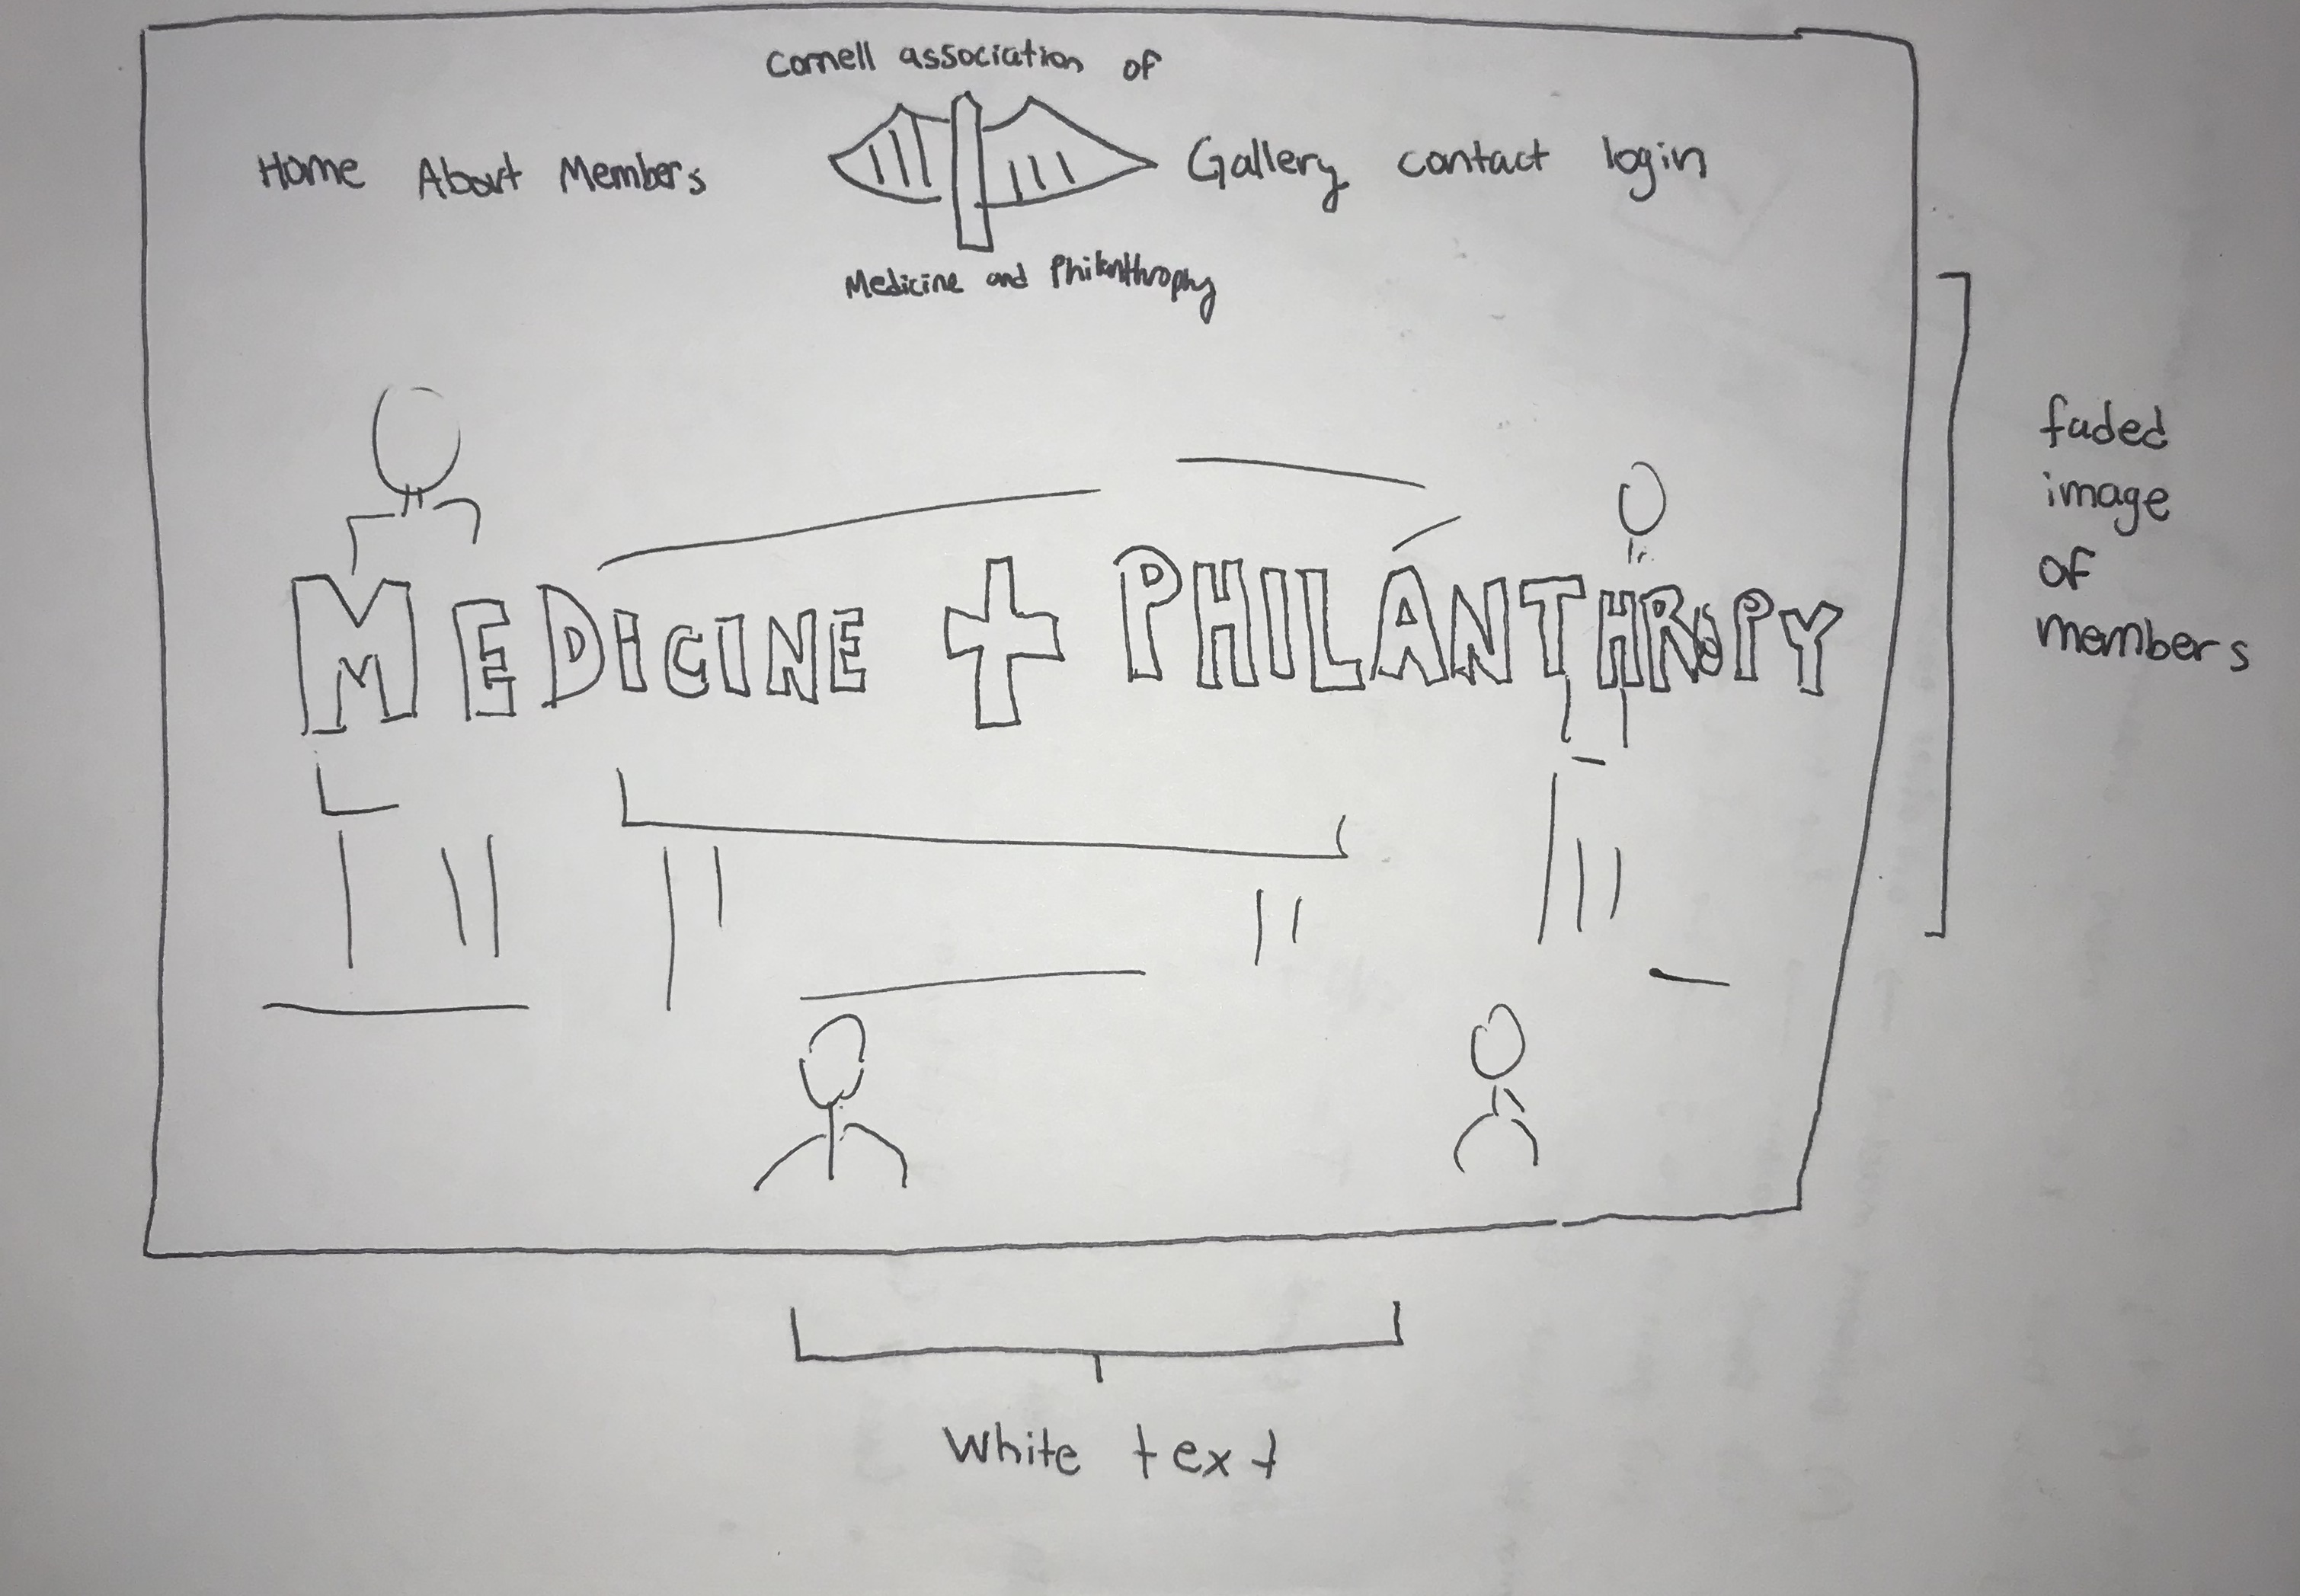 Cornell association of
Home About Members Gallery contact login
Medicine and Philanthropy
MEDiCINE + PHILANTHROPY
faded
image
of
members
White text